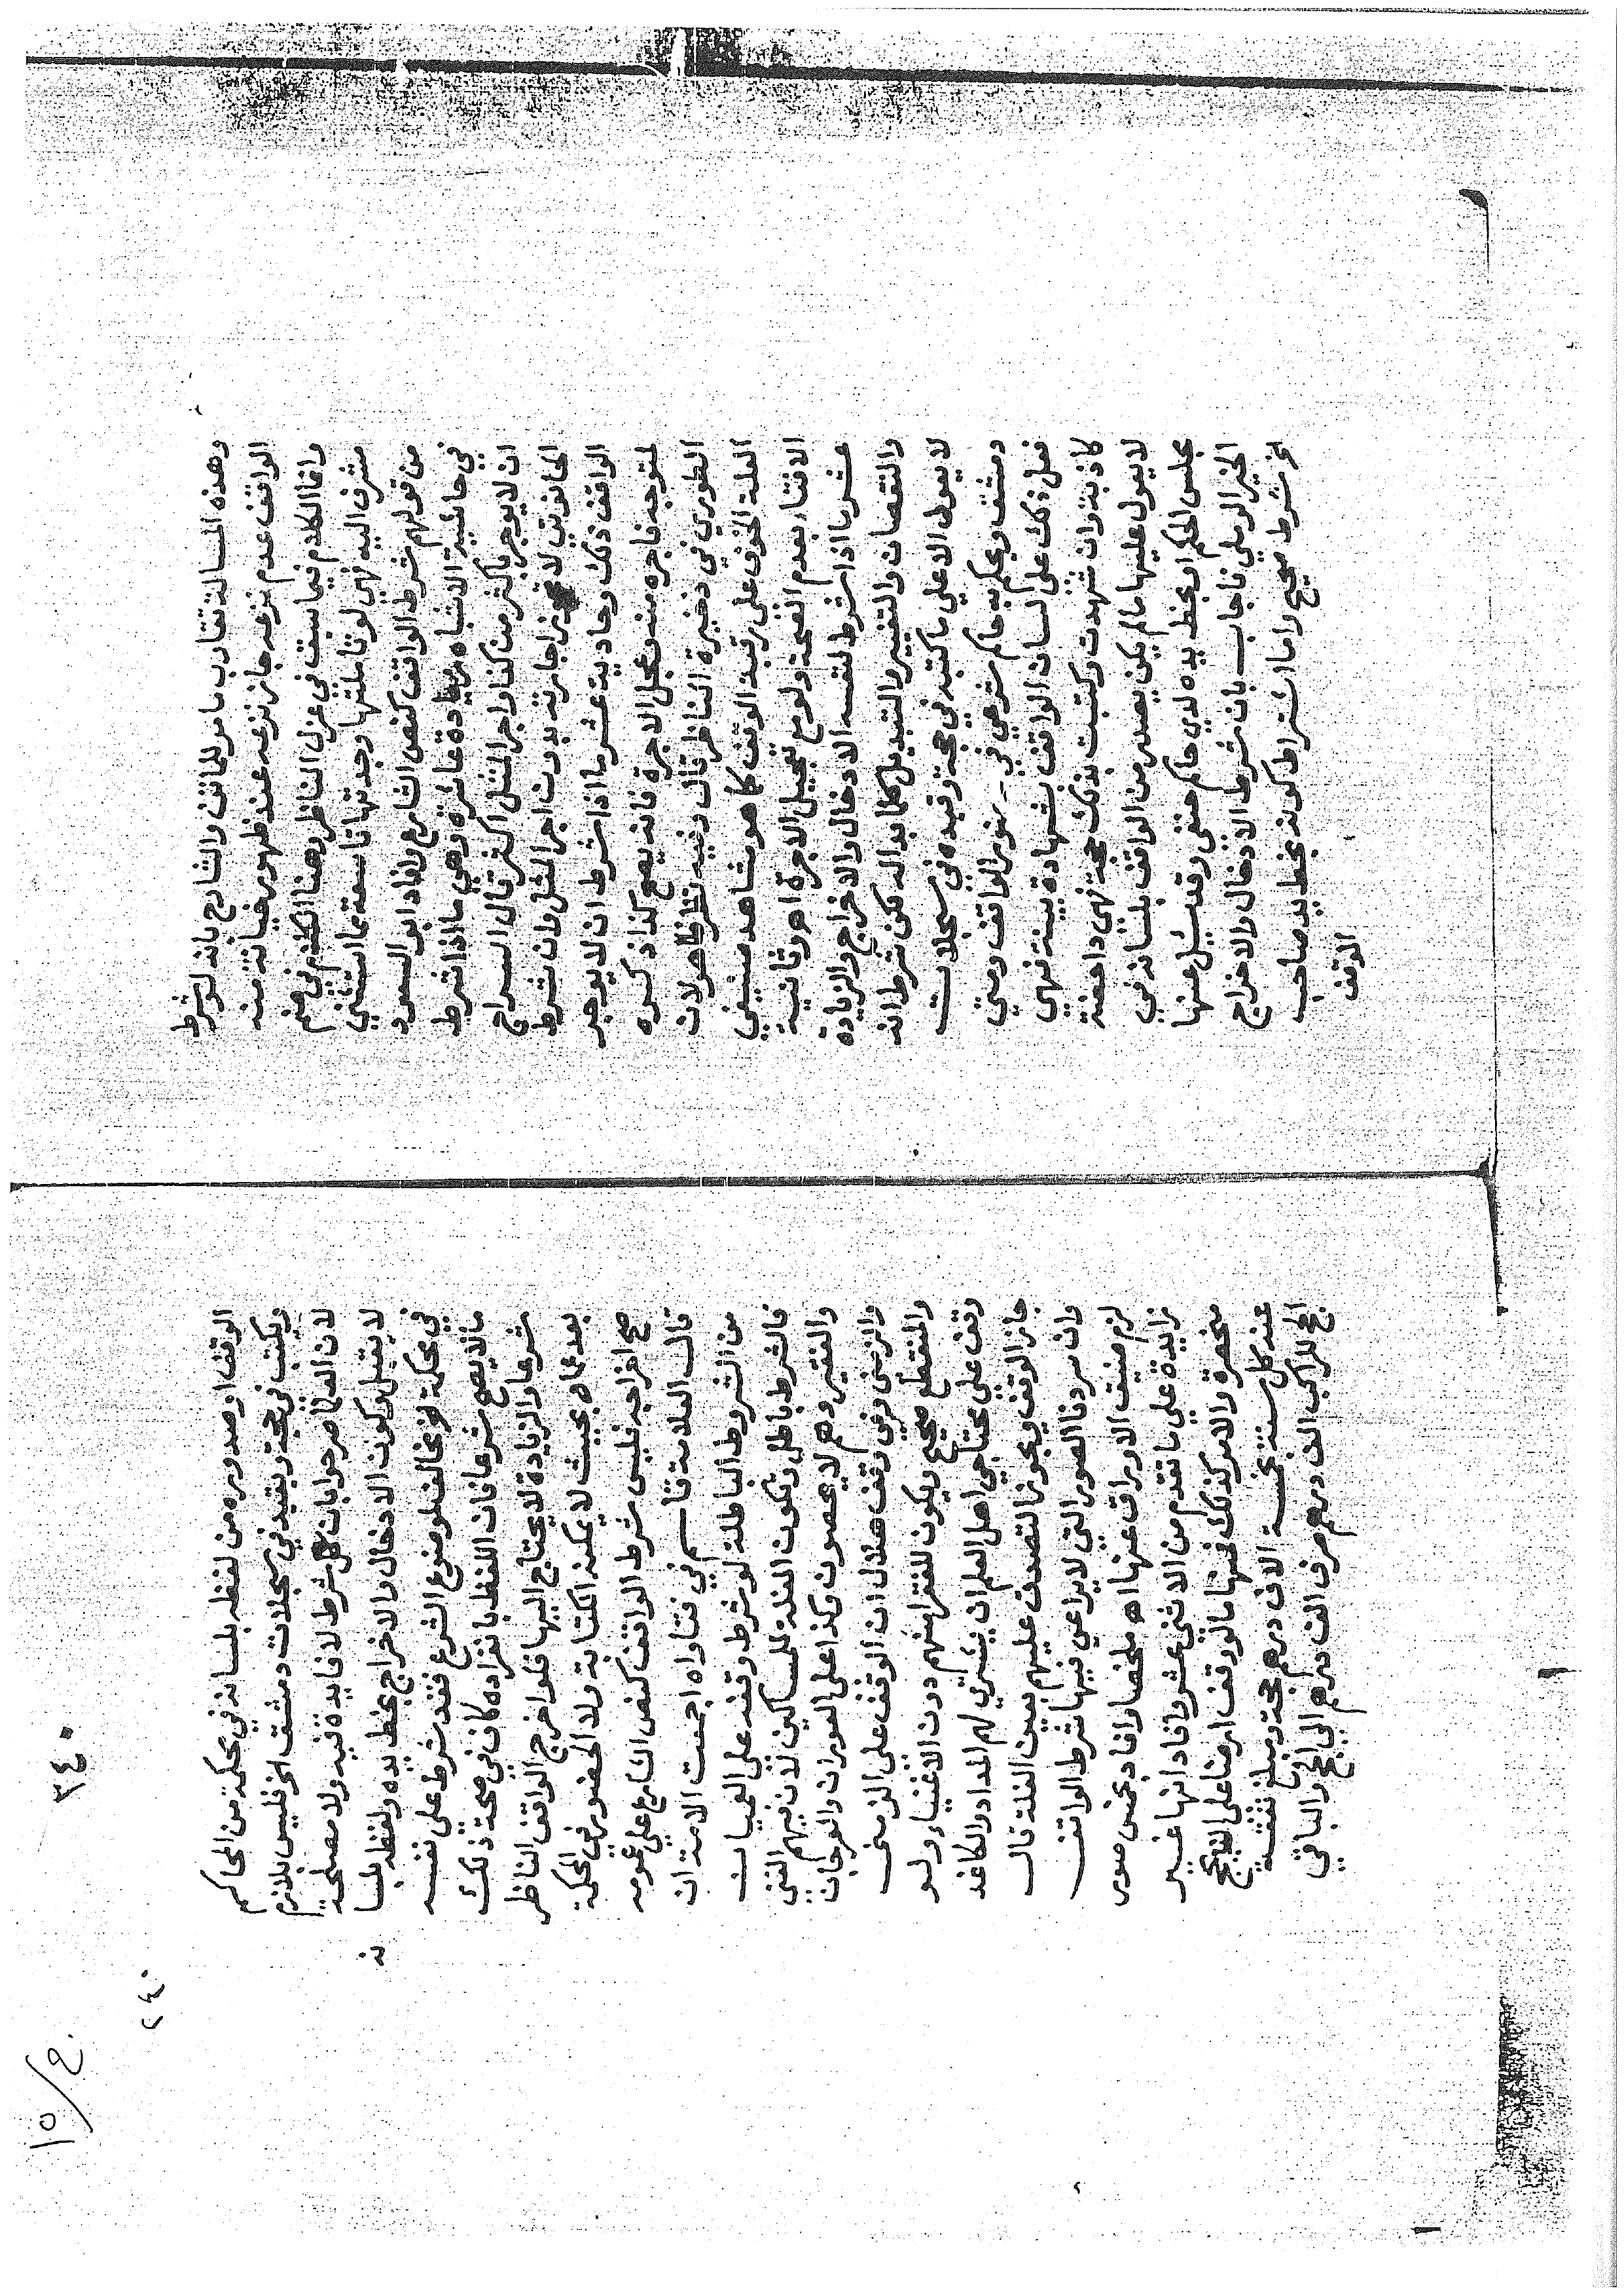 وهذه المسالة تقارب ما مر والشارح بانه لو شرط
الواقف عدم نزعه جاز نزعه عند ظهور خيانة منه
وانما الكلام فيما سبق في عزل الناظر وهنا في ضم
مشرف اليه فهي لو تاملتها وجدتها تاسعة بما استثني
من قولهم شرط الواقف كنص الشارع وافاد ابو السعود
في حاشية الاشباه زيادة عاشرة وهي ما اذا شرط
ان لا يوجر باكثر من كذا واجر المثل اكثر قال السراج
الحانوتي لا تجوز اجارته بدون اجر المثل وان شرط
الواقف ذلك وحادية عشر ما اذا شرط ان لا يوجر
لمتوجه فاجره منه وعجل الاجرة فانه يصح كذا ذكره
الطوري في ذخيرة الناظر قال وفيه نظر ظاهر لان
العلة الخوف على رقبة الوقف كما هو مشاهد فينبغي
الافتاء بعدم الصحة ولو مع تعجيل الاجرة اهـ وثانية
عشر ما اذا شرط لنفسه الادخال والاخراج والزيادة
والنقصان والتغيير والتبديل كلما بدا له لكن شرط انه
لا يعول الا على ما كتبه في حجة وقيده في سجلات
دمشق ويحكم به حاكم شرعي في الواقف ومتى
فعل ذلك على لسان الواقف بشهادة بينة فهي
كاذبة وان شهدت وكتبت بذلك حجة فهي داحضة
لا يعول عليها ما لم يكن يصدر من الواقف بلسانه في
مجلس الحكم او بخط يده لدي حاكم حنفي وقد سيل عنها
الخير الرملي فاجاب بان شرط الادخال والاخراج
الخ شرط صحيح واما اشتراط كونه بخط يد صاحب
الوقف
٣٤٠
٢٤٠
١٥/٩
الوقف او صدوره من لفظه بلسانه في محكمة من المحاكم
ويكتب في حجة ويقيد في سجلات دمشق الخ فليس بلازم
لان الفقها صرحوا بان كل شرط لا فايدة فيه ولا مصلحة
لا يقبل وكون الادخال والاخراج بخط يده ولفظه بلسا
نه
في محكمة لغو مخالف لموضوع الشرع فقد شرط على نفسه
ما لا يصح شرعا فان اللفظ بانفراده كاف في صحة ذلك
شرعا والزيادة لا يحتاج اليها فلو اخرج الواقف الناظر
بعد عماه بحيث لا يمكنه الكتابة ولا الحضور في المحكمة
صح اخراجه فليس شرط الواقف كنص الشارع على عمومه
قال العلامة قاسم في فتاواه اجمعت الامة ان
من الشروط الباطلة لو شرط وقفه على العميان
فالشرط باطل وتكون الغلة للمساكين لان فيهم الغني
والفقير وهم لا يحصون وكذا على العوران والعرجان
والزمنى وفي وقف هلال ان الوقف على الزمنى
والمنقطع صحيح ويكون للفقرا منهم دون الاغنياء ولو
وقف على محتاجي اهل العلم ان يشتري لهم المداد والكاغد
جاز الوقف ويجوز التصدق عليهم بعين الغلة قال
وان سردنا الصور التي لا يراعي فيها شرط الواقف
لزم ضيق الاوراق عنها اهـ ملخصا وافاد بعض صور
زايدة على ما تقدم من الاثني عشر وافاد انها غير
منحصرة والامر كذلك فمنها ما لو وقف ارضا على الحج
عنه كل سنة بخمسة الاف درهم حجة ومبلغ نفقة
الحج للراكب الف درهم صرف الف درهم الى الحج والباقي